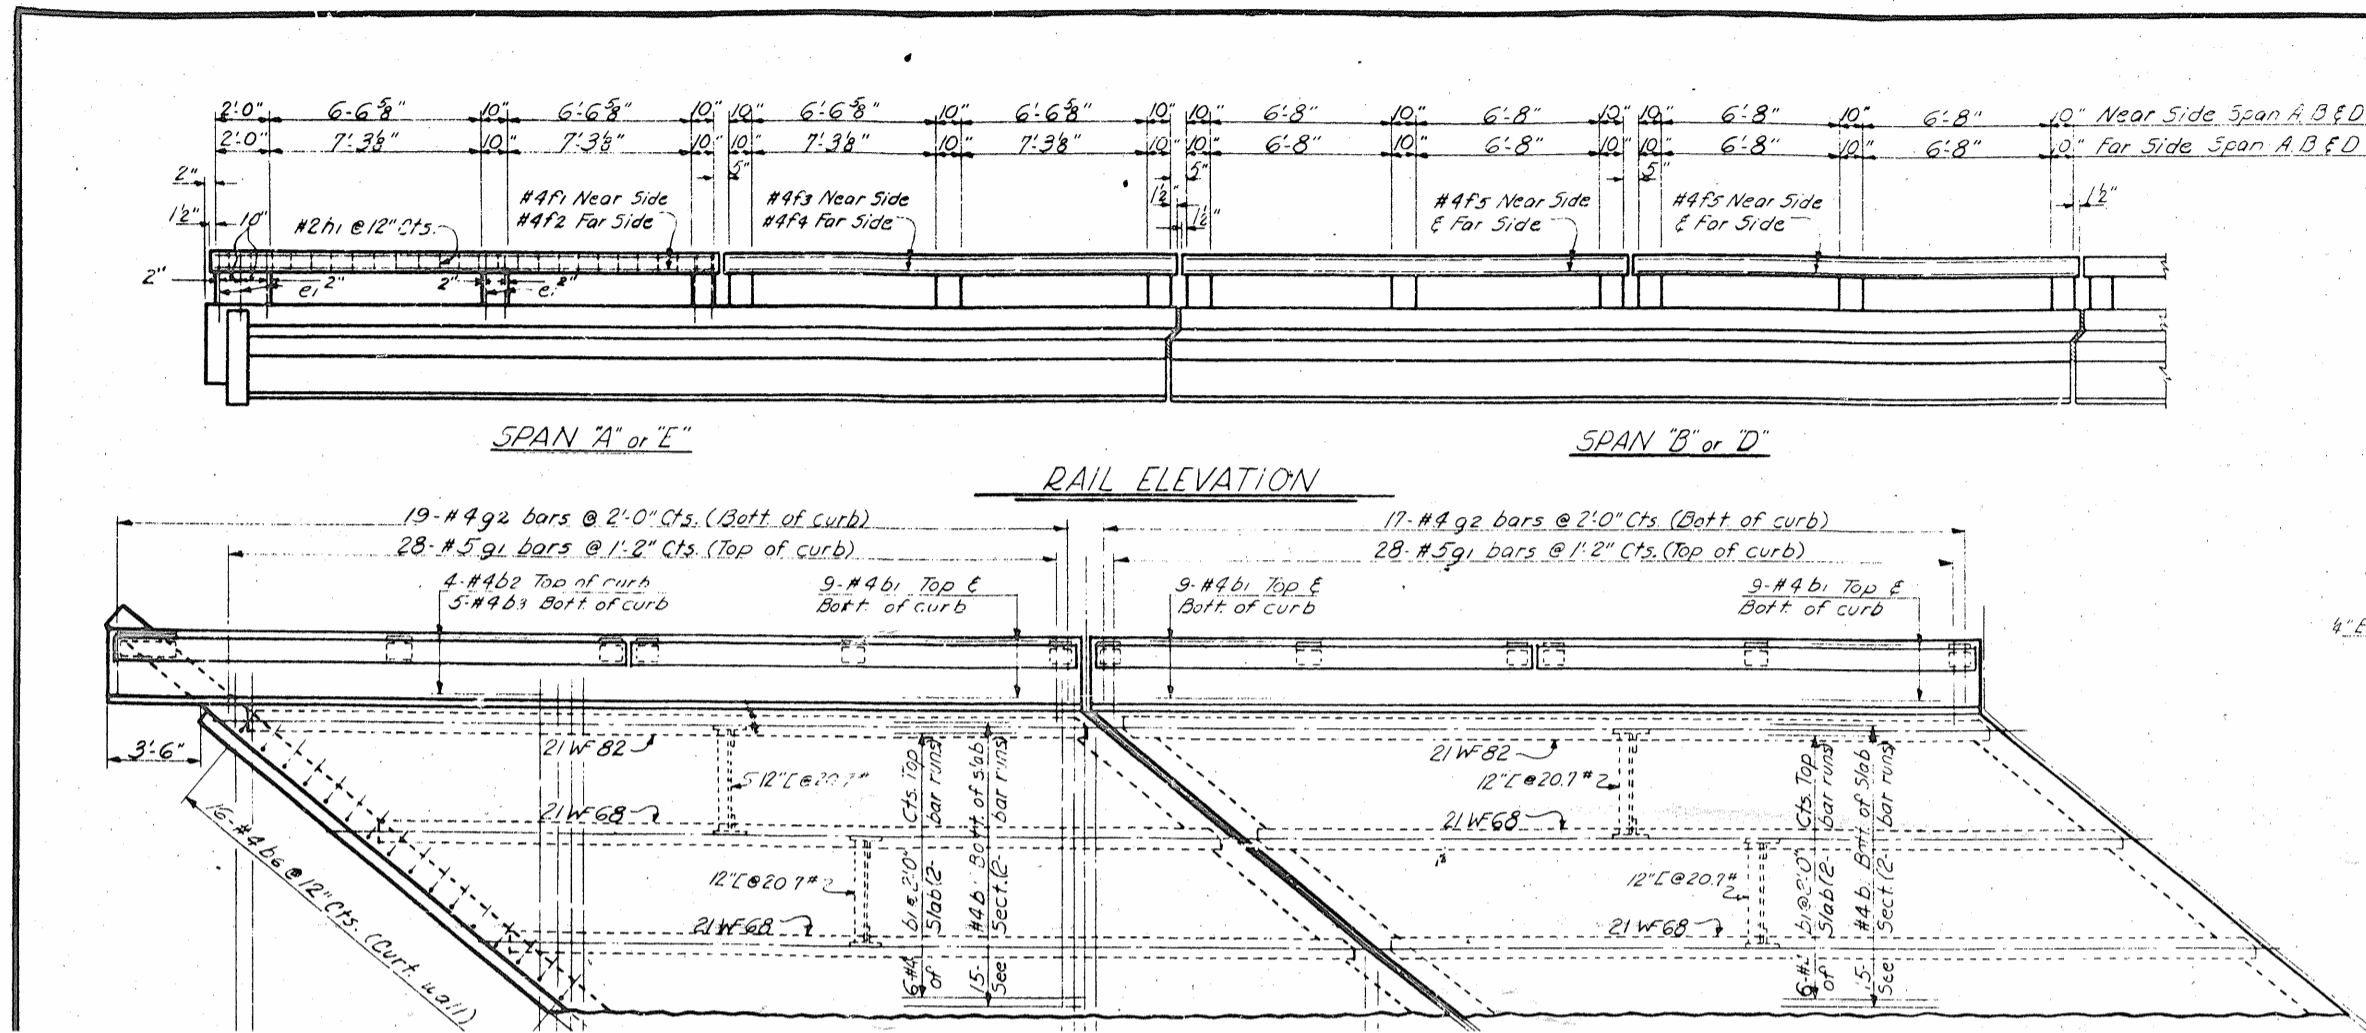 2'-0" 6-6 5/8" 10" 6'-6 5/8" 10" 10" 6'-6 5/8" 10" 6'-6 5/8" 10" 10" 6'-8" 10" 6'-8" 10" 10" 6'-8" 10" 6'-8" 10" Near Side Span A, B & D
2'-0" 7'-3 1/8" 10" 7'-3 1/8" 10" 10" 7'-3 1/8" 10" 7'-3 1/8" 10" 10" 6'-8" 10" 6'-8" 10" 10" 6'-8" 10" 6'-8" 10" Far Side Span A, B & D
2" 5" 5" 5"
1 1/2" 10" 1 1/2" 1 1/2" 1 1/2"
#2h1 @ 12" Cts.
#4f1 Near Side
#4f2 Far Side
#4f3 Near Side
#4f4 Far Side
#4f5 Near Side
& Far Side
#4f5 Near Side
& Far Side
2" e1 2" 2" e1 2"
SPAN "A" or "E"
SPAN "B" or "D"
RAIL ELEVATION
19-#4g2 bars @ 2'-0" Cts. (Bott. of curb)
28-#5g1 bars @ 1'-2" Cts. (Top of curb)
17-#4g2 bars @ 2'-0" Cts. (Bott. of curb)
28-#5g1 bars @ 1'-2" Cts. (Top of curb)
4-#4b2 Top of curb
5-#4b3 Bott. of curb
9-#4b1 Top &
Bott. of curb
9-#4b1 Top &
Bott. of curb
9-#4b1 Top &
Bott. of curb
4"
3'-6"
21 WF 82
12"[@20.7#
21 WF 68
12"[@20.7#
21 WF 68
16-#4b6 @ 12" Cts. (Curt. wall)
6-#4 b1 @ 2'-0" Cts. Top
of Slab (2- bar runs)
15-#4b. Bott. of slab
See Sect. (2- bar runs)
21 WF 82
12"[@20.7#
21 WF 68
12"[@20.7#
21 WF 68
b1 @ 2'-0" Cts. Top
of Slab (2- bar runs)
15-#4b. Bott. of Slab
See Sect. (2- bar runs)